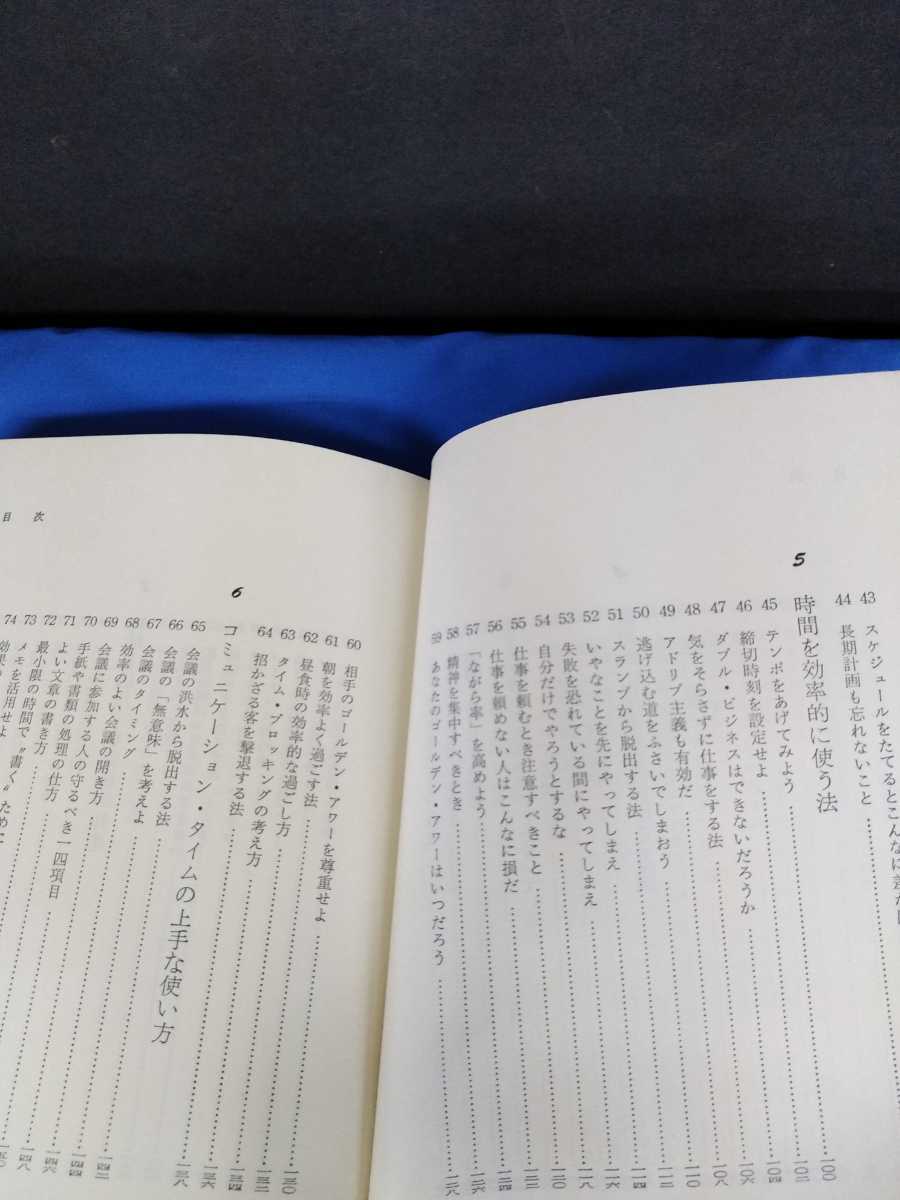 43 スケジュールをたてるとこんなに差が
44 長期計画も忘れないこと
5 時間を効率的に使う法
45 テンポをあげてみよう 一〇〇
46 締切時刻を設定せよ 一〇二
47 ダブル・ビジネスはできないだろうか 一〇四
48 気をそらさずに仕事をする法 一〇六
49 アドリブ主義も有効だ 一〇八
50 逃げ込む道をふさいでしまおう 一一〇
51 スランプから脱出する法 一一二
52 いやなことを先にやってしまえ 一一四
53 失敗を恐れている間にやってしまえ 一一六
54 自分だけでやろうとするな 一一八
55 仕事を頼むとき注意すべきこと 一二〇
56 仕事を頼めない人はこんなに損だ 一二二
57 「ながら率」を高めよう 一二四
58 精神を集中すべきとき 一二六
59 あなたのゴールデン・アワーはいつだろう 一二八
目次
60 相手のゴールデン・アワーを尊重せよ 一三〇
61 朝を効率よく過ごす法 一三二
62 昼食時の効率的な過ごし方 一三四
63 タイム・ブロッキングの考え方 一三六
64 招かざる客を撃退する法 一三八
6 コミュニケーション・タイムの上手な使い方
65 会議の洪水から脱出する法 一四二
66 会議の「無意味」を考えよ 一四四
67 会議のタイミング 一四六
68 効率のよい会議の開き方 一四八
69 会議に参加する人の守るべき一四項目 一五〇
70 手紙や書類の処理の仕方
71 よい文章の書き方
72 最小限の時間で〝書く〟ために
73 メモを活用せよ
74 効果